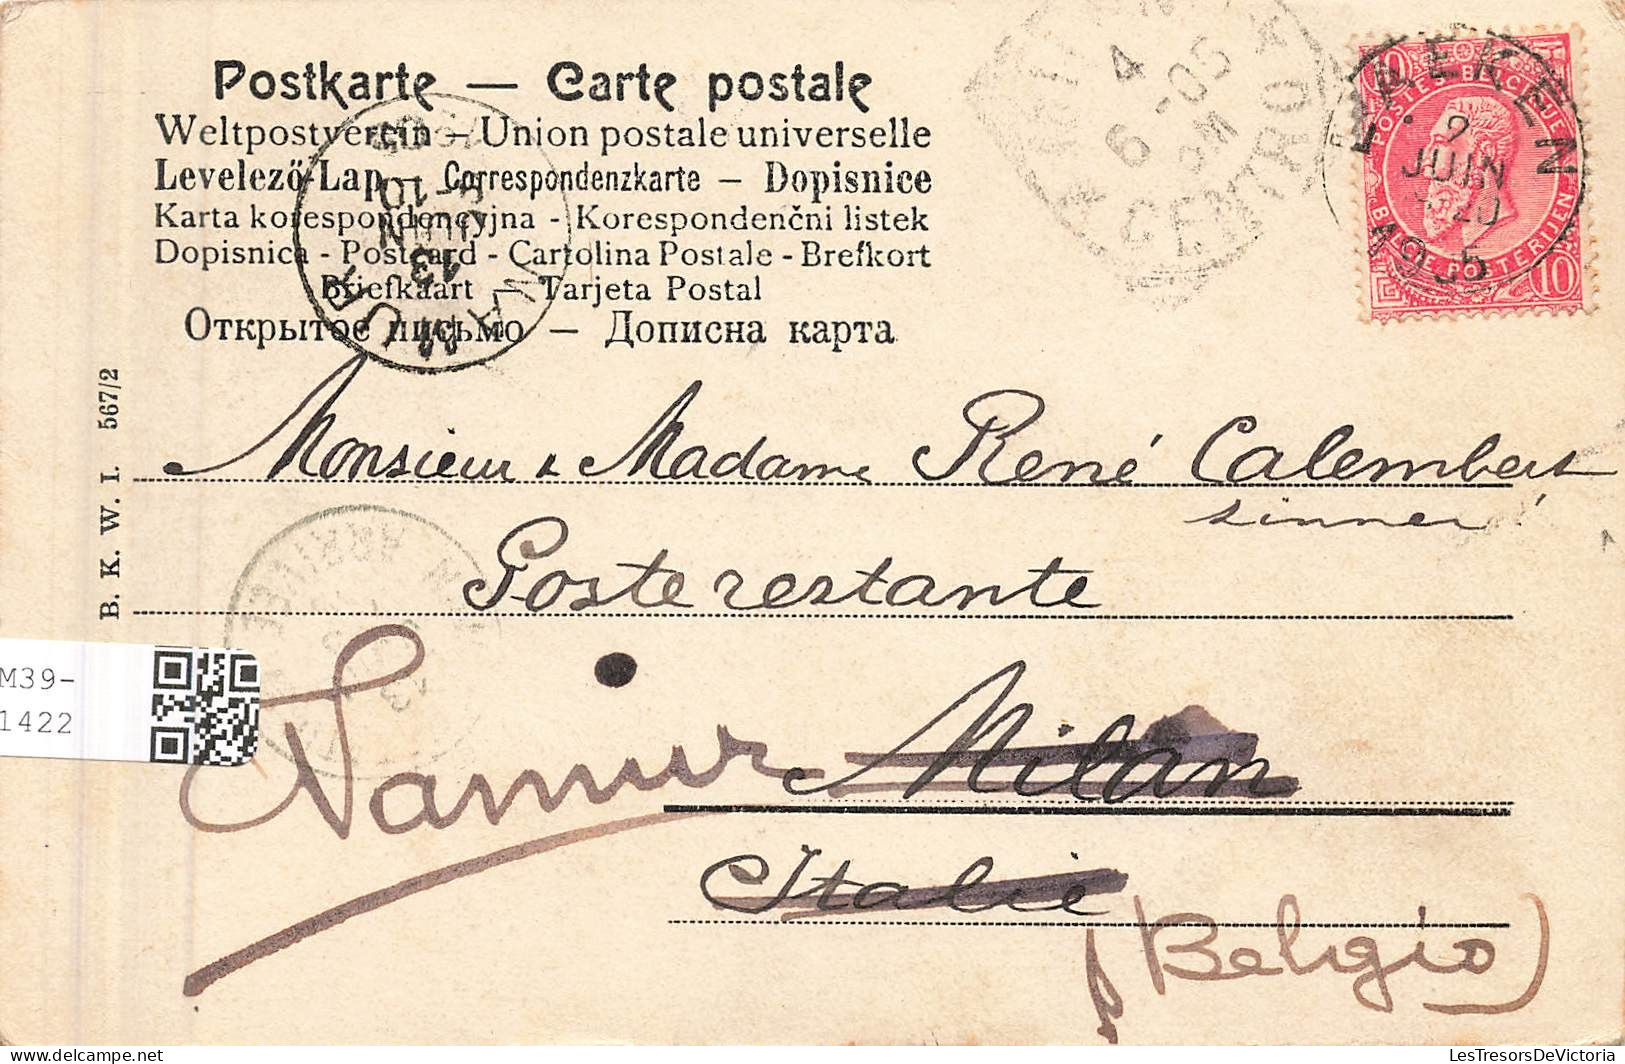 Postkarte — Carte postale
Weltpostverein – Union postale universelle
Levelező-Lap – Correspondenzkarte – Dopisnice
Karta korespondencyjna - Korespondenční listek
Dopisnica - Postcard - Cartolina Postale - Brefkort
Briefkaart – Tarjeta Postal
Открытое письмо – Дописна карта
LAEKEN
2
JUIN
1905
POSTES BELGIQUE
BELGIE POSTERIJEN
10 10
4
6 -05
CENTRO
NAMUR
13
JUIN
B. K. W. I. 567/2
Monsieur & Madame René Calembert
Poste restante
Namur Milan
Italie
(Belgio)
M39-
1422
LesTresorsDeVictoria
delcampe.net